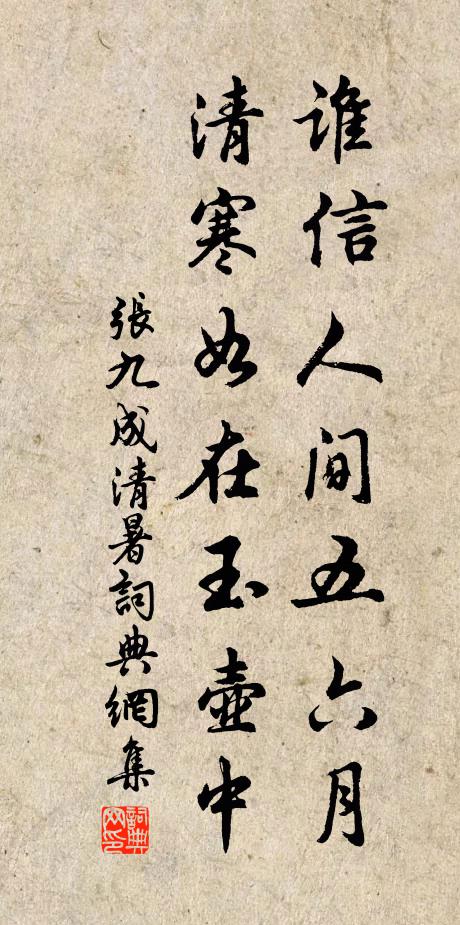 谁信人间五六月
清寒如在玉壶中
張九成清暑詞典網集
詞典网印